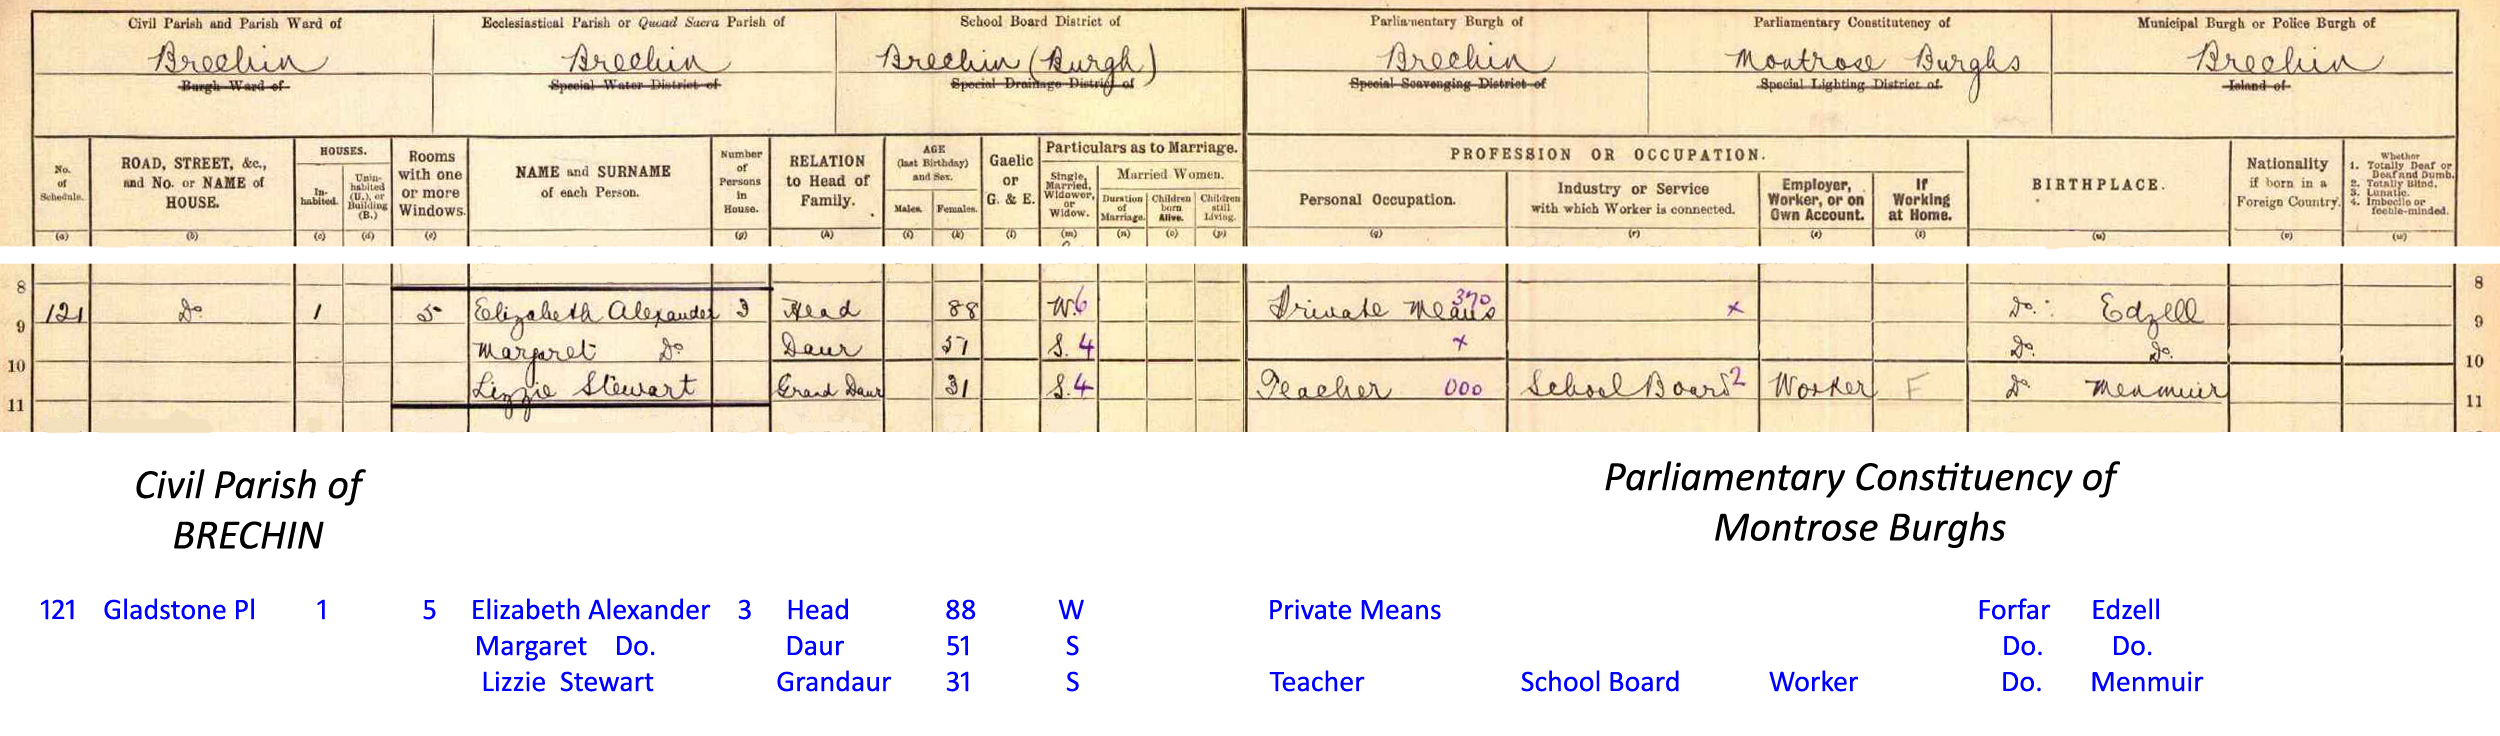 Civil Parish and Parish Ward of
Brechin
Burgh Ward of
Ecclesiastical Parish or Quoad Sacra Parish of
Brechin
Special Water District of
School Board District of
Brechin (Burgh)
Special Drainage District of
Parliamentary Burgh of
Brechin
Special Scavenging District of
Parliamentary Constitutency of
Montrose Burghs
Special Lighting District of
Municipal Burgh or Police Burgh of
Brechin
Island of
No. of Schedule.
(a)
ROAD, STREET, &c.,
and No. or NAME of
HOUSE.
(b)
HOUSES.
In-
habited.
(c)
Unin-
habited
(U.), or
Building
(B.)
(d)
Rooms
with one
or more
Windows.
(e)
NAME and SURNAME
of each Person.
Number
of
Persons
in
House.
(g)
RELATION
to Head of
Family.
(h)
AGE
(last Birthday)
and Sex.
Males.
(i)
Females.
(k)
Gaelic
or
G. & E.
(l)
Particulars as to Marriage.
Single,
Married,
Widower,
or
Widow.
(m)
Married Women.
Duration
of
Marriage.
(n)
Children
born
Alive.
(o)
Children
still
Living.
(p)
PROFESSION OR OCCUPATION.
Personal Occupation.
(q)
Industry or Service
with which Worker is connected.
(r)
Employer,
Worker, or on
Own Account.
(s)
If
Working
at Home.
(t)
BIRTHPLACE.
(u)
Nationality
if born in a
Foreign Country.
(v)
Whether
1. Totally Deaf or
Deaf and Dumb.
2. Totally Blind.
3. Lunatic.
4. Imbecile or
feeble-minded.
(w)
8 8
121 Do. 1 5 Elizabeth Alexander 3 Head 88 W.6 Private Means 370 x Do. Edzell
9 9
Margaret Do Daur 51 S. 4 x Do. Do.
10 10
Lizzie Stewart Grand Daur 31 S.4 Teacher 000 School Board 2 Worker F Do Menmuir
11 11
Civil Parish of
BRECHIN
Parliamentary Constituency of
Montrose Burghs
121 Gladstone Pl 1 5 Elizabeth Alexander 3 Head 88 W Private Means Forfar Edzell
Margaret Do. Daur 51 S Do. Do.
Lizzie Stewart Grandaur 31 S Teacher School Board Worker Do. Menmuir